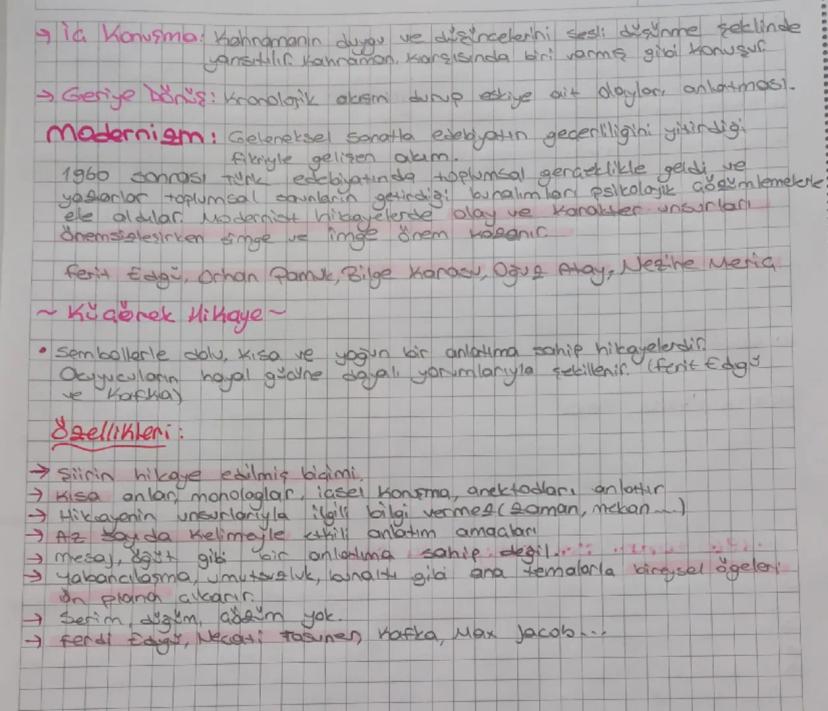 → İç Konuşma: Kahramanın duygu ve düşüncelerini sesli düşünme şeklinde
yansıtılır. Kahraman, karşısında biri varmış gibi konuşur.
→ Geriye Dönüş: Kronolojik akışını durup eskiye ait olayları anlatması.
Modernizm: Geleneksel sanatla edebiyatın geçerliliğini yitirdiği
fikriyle gelişen akım.
1960 sonrası Türk edebiyatında toplumsal gerçeklikle geldi ve
yazarlar toplumsal sorunların getirdiği bunalımları psikolojik çözümlemelerle
ele aldılar. Modernist hikayelerde olay ve karakter unsurları
önemsizleşirken simge ve imge önem kazanır.
Ferit Edgü, Orhan Pamuk, Bilge Karasu, Oğuz Atay, Nezihe Meriç
~ Küçürek Hikaye ~
• Sembollerle dolu, kısa ve yoğun bir anlatıma sahip hikayelerdir.
Okuyucuların hayal gücüne dayalı yorumlarıyla şekillenir. (Ferit Edgü
ve Kafka)
Özellikleri:
→ Şiirin hikaye edilmiş biçimi.
→ Kısa anlar, monologlar, içsel konuşma, anektodları anlatır
→ Hikayenin unsurlarıyla ilgili bilgi vermez (zaman, mekan...)
→ Az sayıda kelimeyle etkili anlatım amaçları
→ mesaj, öğüt gibi bir anlatıma sahip değil.
→ yabancılaşma, umutsuzluk, bunaltı gibi ana temalarla bireysel ögeleri
ön plana çıkarır.
→ Serim, düğüm, çözüm yok.
→ Ferdi Edgü, Necati Tosuner, Kafka, Max Jacob...